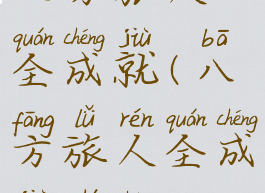 quán chéng jiù bā
全成就(八
fāng lǚ rén quán chéng
方旅人全成